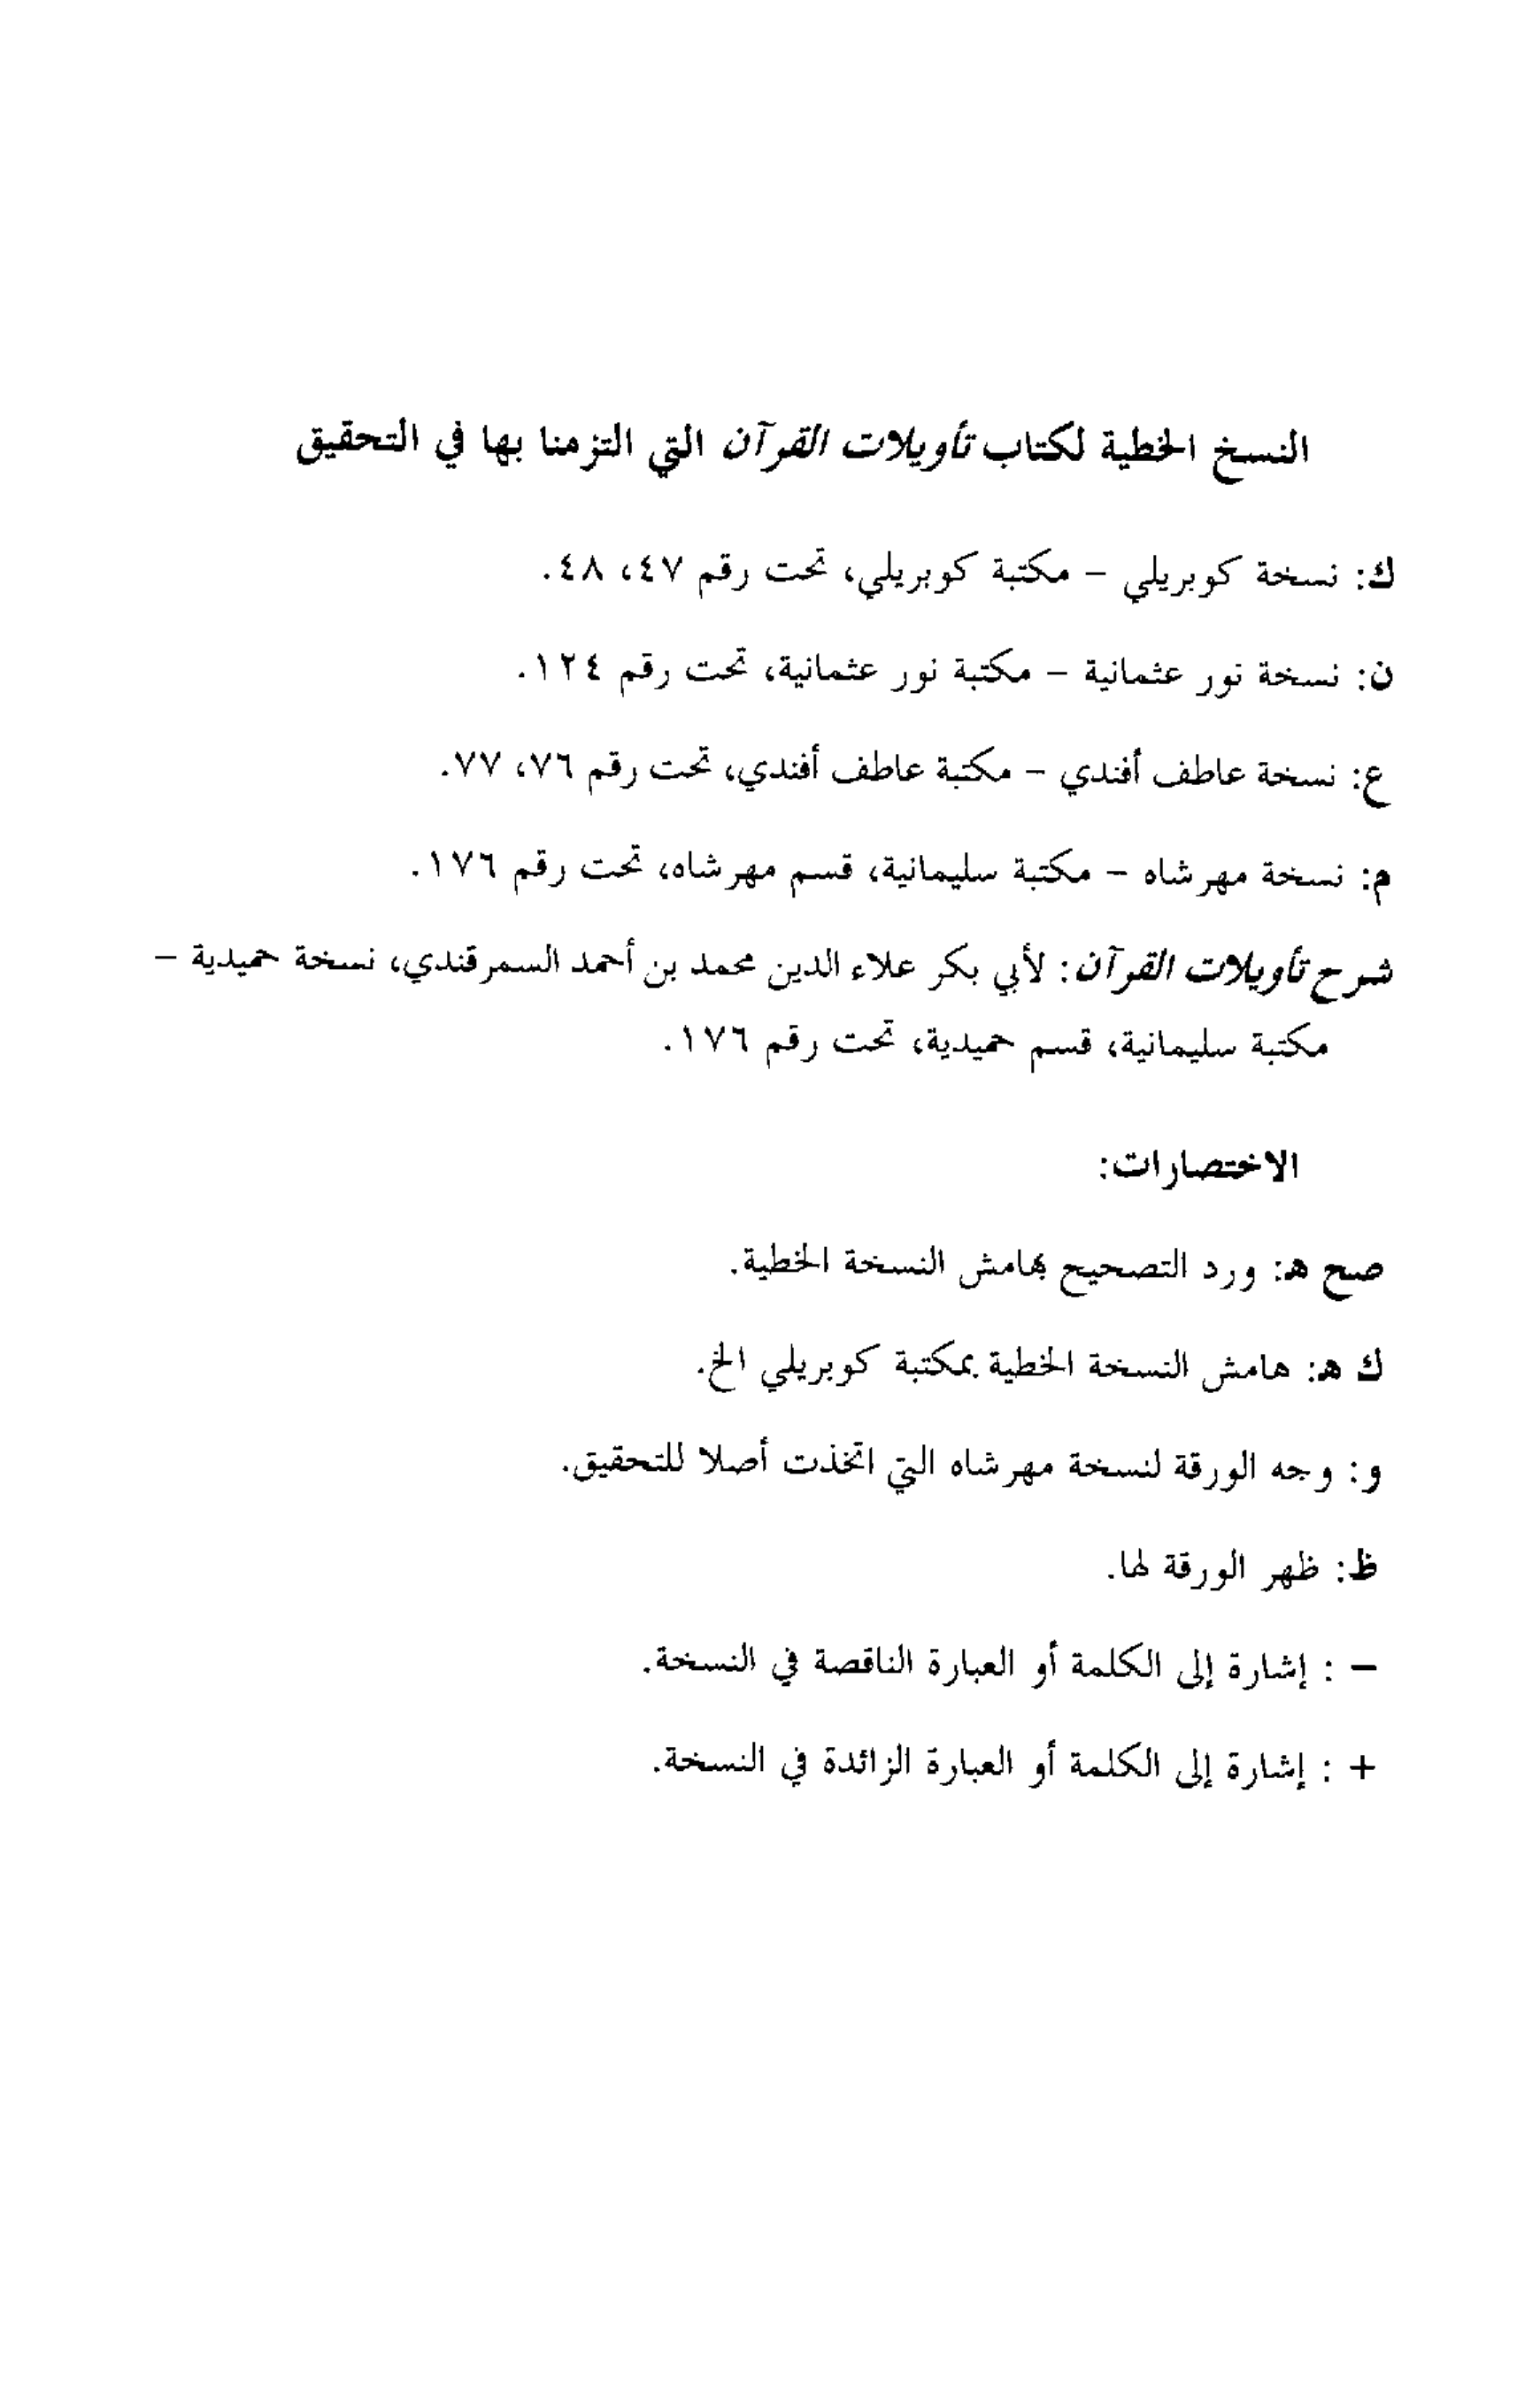 النسخ الخطية لكتاب تأويلات القرآن التي التزمنا بها في التحقيق
ك: نسخة كوبريلي – مكتبة كوبريلي، تحت رقم ٤٧، ٤٨.
ن: نسخة نور عثمانية – مكتبة نور عثمانية، تحت رقم ١٢٤.
ع: نسخة عاطف أفندي – مكتبة عاطف أفندي، تحت رقم ٧٦، ٧٧.
م: نسخة مهرشاه – مكتبة سليمانية، قسم مهرشاه، تحت رقم ١٧٦.
شرح تأويلات القرآن: لأبي بكر علاء الدين محمد بن أحمد السمرقندي، نسخة حميدية –
مكتبة سليمانية، قسم حميدية، تحت رقم ١٧٦.
الاختصارات:
صح هـ: ورد التصحيح بهامش النسخة الخطية.
ك هـ: هامش النسخة الخطية بمكتبة كوبريلي الخ.
و: وجه الورقة لنسخة مهرشاه التي اتخذت أصلا للتحقيق.
ظ: ظهر الورقة لها.
– : إشارة إلى الكلمة أو العبارة الناقصة في النسخة.
+ : إشارة إلى الكلمة أو العبارة الزائدة في النسخة.